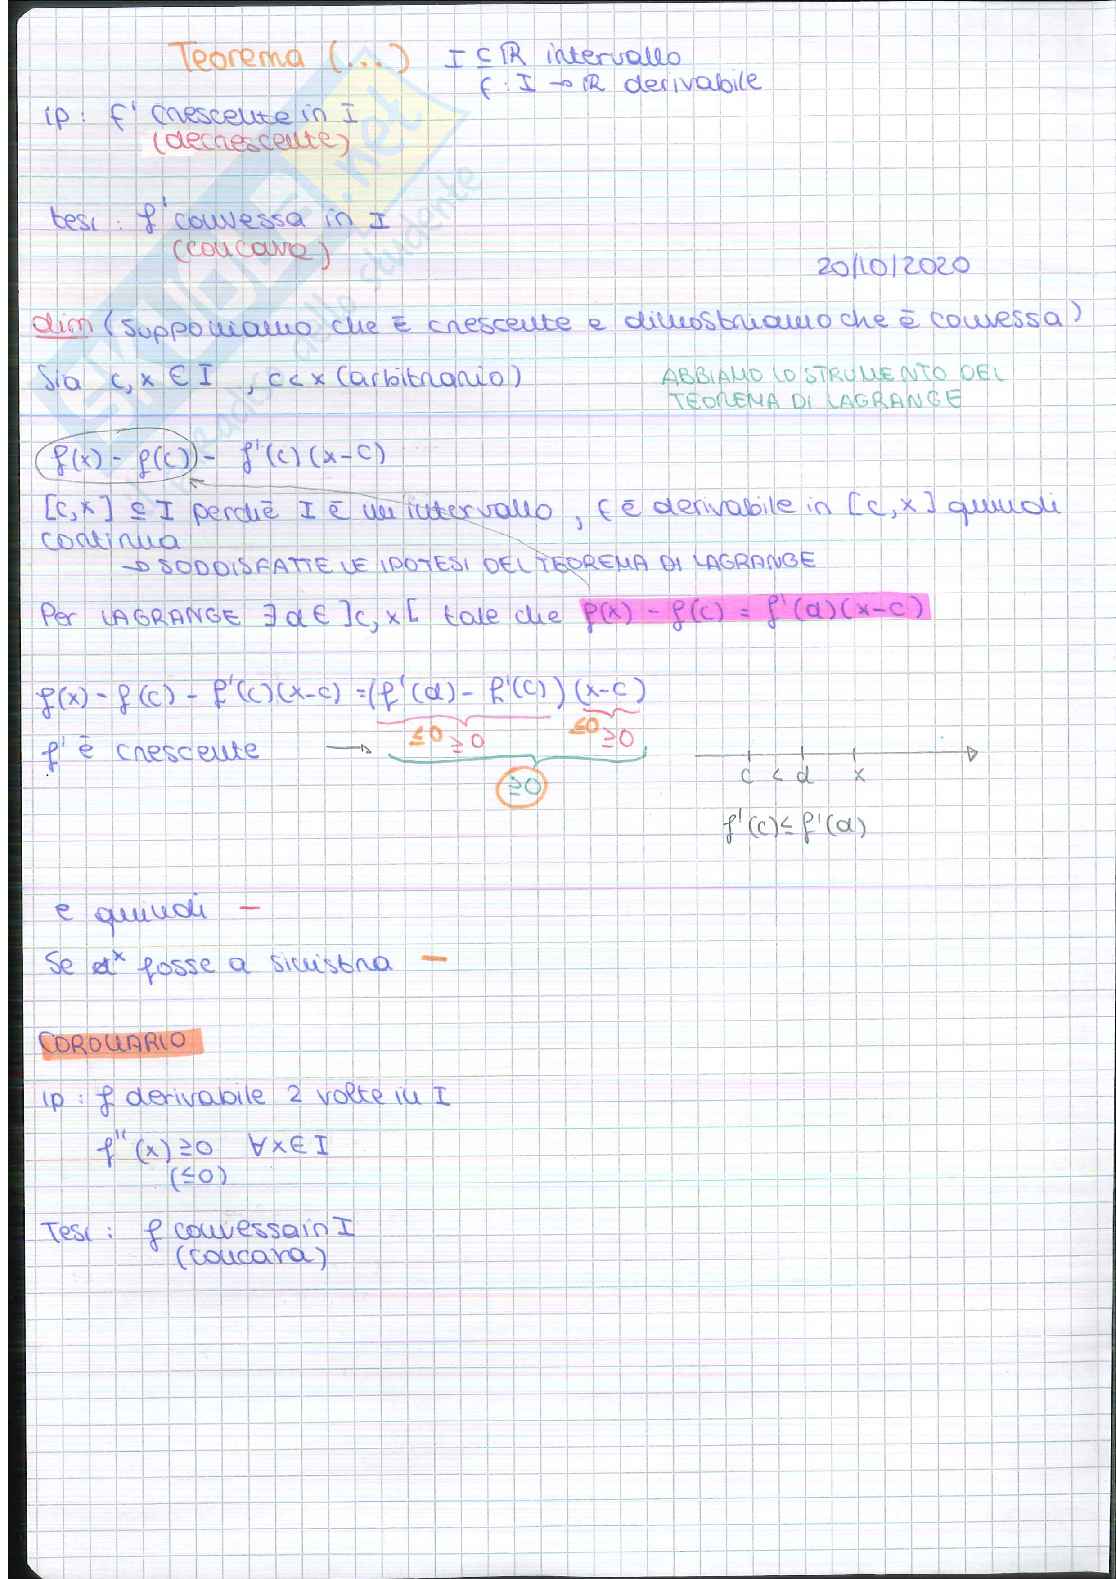 Teorema (...) I ⊆ ℝ intervallo
f: I → ℝ derivabile
ip: f' crescente in I
(decrescente)
tesi: f' convessa in I
(concave)
20/10/2020
dim (supponiamo che è crescente e dimostriamo che è convessa)
Sia c, x ∈ I, c < x (arbitrario)
ABBIAMO LO STRUMENTO DEL
TEOREMA DI LAGRANGE
f(x) - f(c) - f'(c)(x-c)
[c,x] ⊆ I perché I è un intervallo, f è derivabile in [c,x] quindi
continua
→ SODDISFATTE LE IPOTESI DEL TEOREMA DI LAGRANGE
Per LAGRANGE ∃ d ∈ ]c,x[ tale che f(x) - f(c) = f'(d)(x-c)
f(x) - f(c) - f'(c)(x-c) = (f'(d) - f'(c))(x-c)
≤0 ≥0 ≤0 ≥0
f' è crescente →
≥0
c < d x
f'(c) ≤ f'(d)
e quindi —
Se x fosse a sinistra —
COROLLARIO
ip: f derivabile 2 volte in I
f''(x) ≥ 0 ∀x ∈ I
(≤0)
Tesi: f convessa in I
(concava)
SKUOLA.net